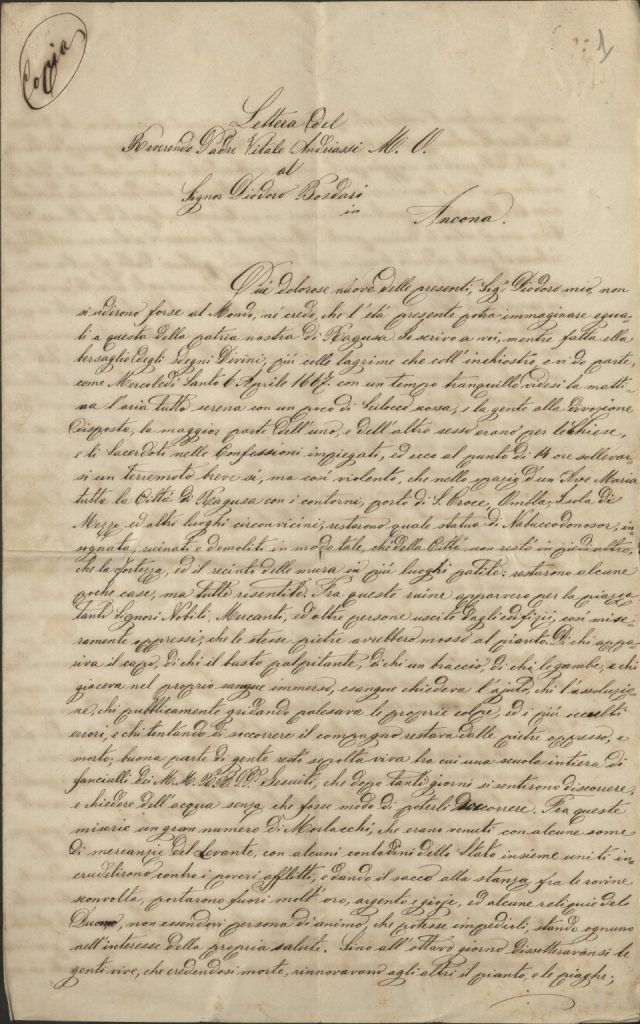 Copia
1
Lettera del
Reverendo Padre Vitale Andriassi M. O.
al
Signor Diodoro Bosdari
in
Ancona.
Più dolorose nuove delle presenti, Sig.r Diodoro mio, non
si udirono forse al Mondo, nè credo, che l'età presente potrà immaginare egua-
li a questa della patria nostra di Ragusa. Io scrivo a voi, mentre fatta ella
bersaglio degli Sdegni Divini, più colle lagrime che coll'inchiostro e vi do parte,
come Mercoledì Santo 6 Aprile 1667 con un tempo tranquillo videsi la matti-
na l'aria tutta serena con un poco di Scilocco rossa, e la gente alla divozione
disposta, la maggior parte dell'uno, e dell'altro sesso erano per le chiese,
e li Sacerdoti nelle Confessioni impiegati, ed ecco al punto di 14 ore sollevar-
si un terremoto breve sì, ma così violento, che nello spazio d'un Ave Maria
tutta la Città di Ragusa con i contorni, porto di S. Croce, Ombla, Isola di
Mezzo, ed altri luoghi circonvicini, restarono quale statua di Nabuccodonosor, in-
sognata, ruinati e demoliti in modo tale, che della Città non restò in piedi altro,
che la fortezza, ed il recinto delle mura in più luoghi patite; restarono alcune
poche case, ma tutte risentite. Fra queste ruine apparvero per la piazza
tanti Signori Nobili, Mercanti, ed altre persone uscite dagli edifizii, così mise-
ramente oppressi, che le stesse pietre avrebbero mosso al pianto. Di chi appa-
riva il capo, di chi il busto palpitante, di chi un braccio, di chi le gambe, e chi
giaceva nel proprio sangue immerso, esangue chiedeva l'ajuto, chi l'assoluzio-
ne, chi pubblicamente gridando palesava le proprie colpe, ed i più occulti
errori, e chi tentando di soccorrere il compagno restava dalle pietre oppresso, e
morto, buona parte di gente restò sepolta viva fra cui una scuola intiera di
fanciulli dei M. M. R. R. P. P. Gesuiti, che dopo tanti giorni si sentirono discorrere,
e chiedere dell'acqua senza che fosse modo di poterli soccorrere. Fra queste
miserie un gran numero di Morlacchi, che erano venuti con alcune some
di mercanzie del Levante, con alcuni contadini dello Stato insieme uniti in-
crudelirono contro i poveri afflitti, e dando il sacco alla stanza, fra le rovine
sconvolta, portarono fuori molt'oro, argento e gioje, ed alcune reliquie del
Duomo, non essendovi persona di animo, che potesse impedirli, stando ognuno
nell'interesse della propria salute. Sino all'ottavo giorno dissotteravansi le
genti vive, che credendosi morte, rinnovavano agli altri il pianto, e le piaghe;